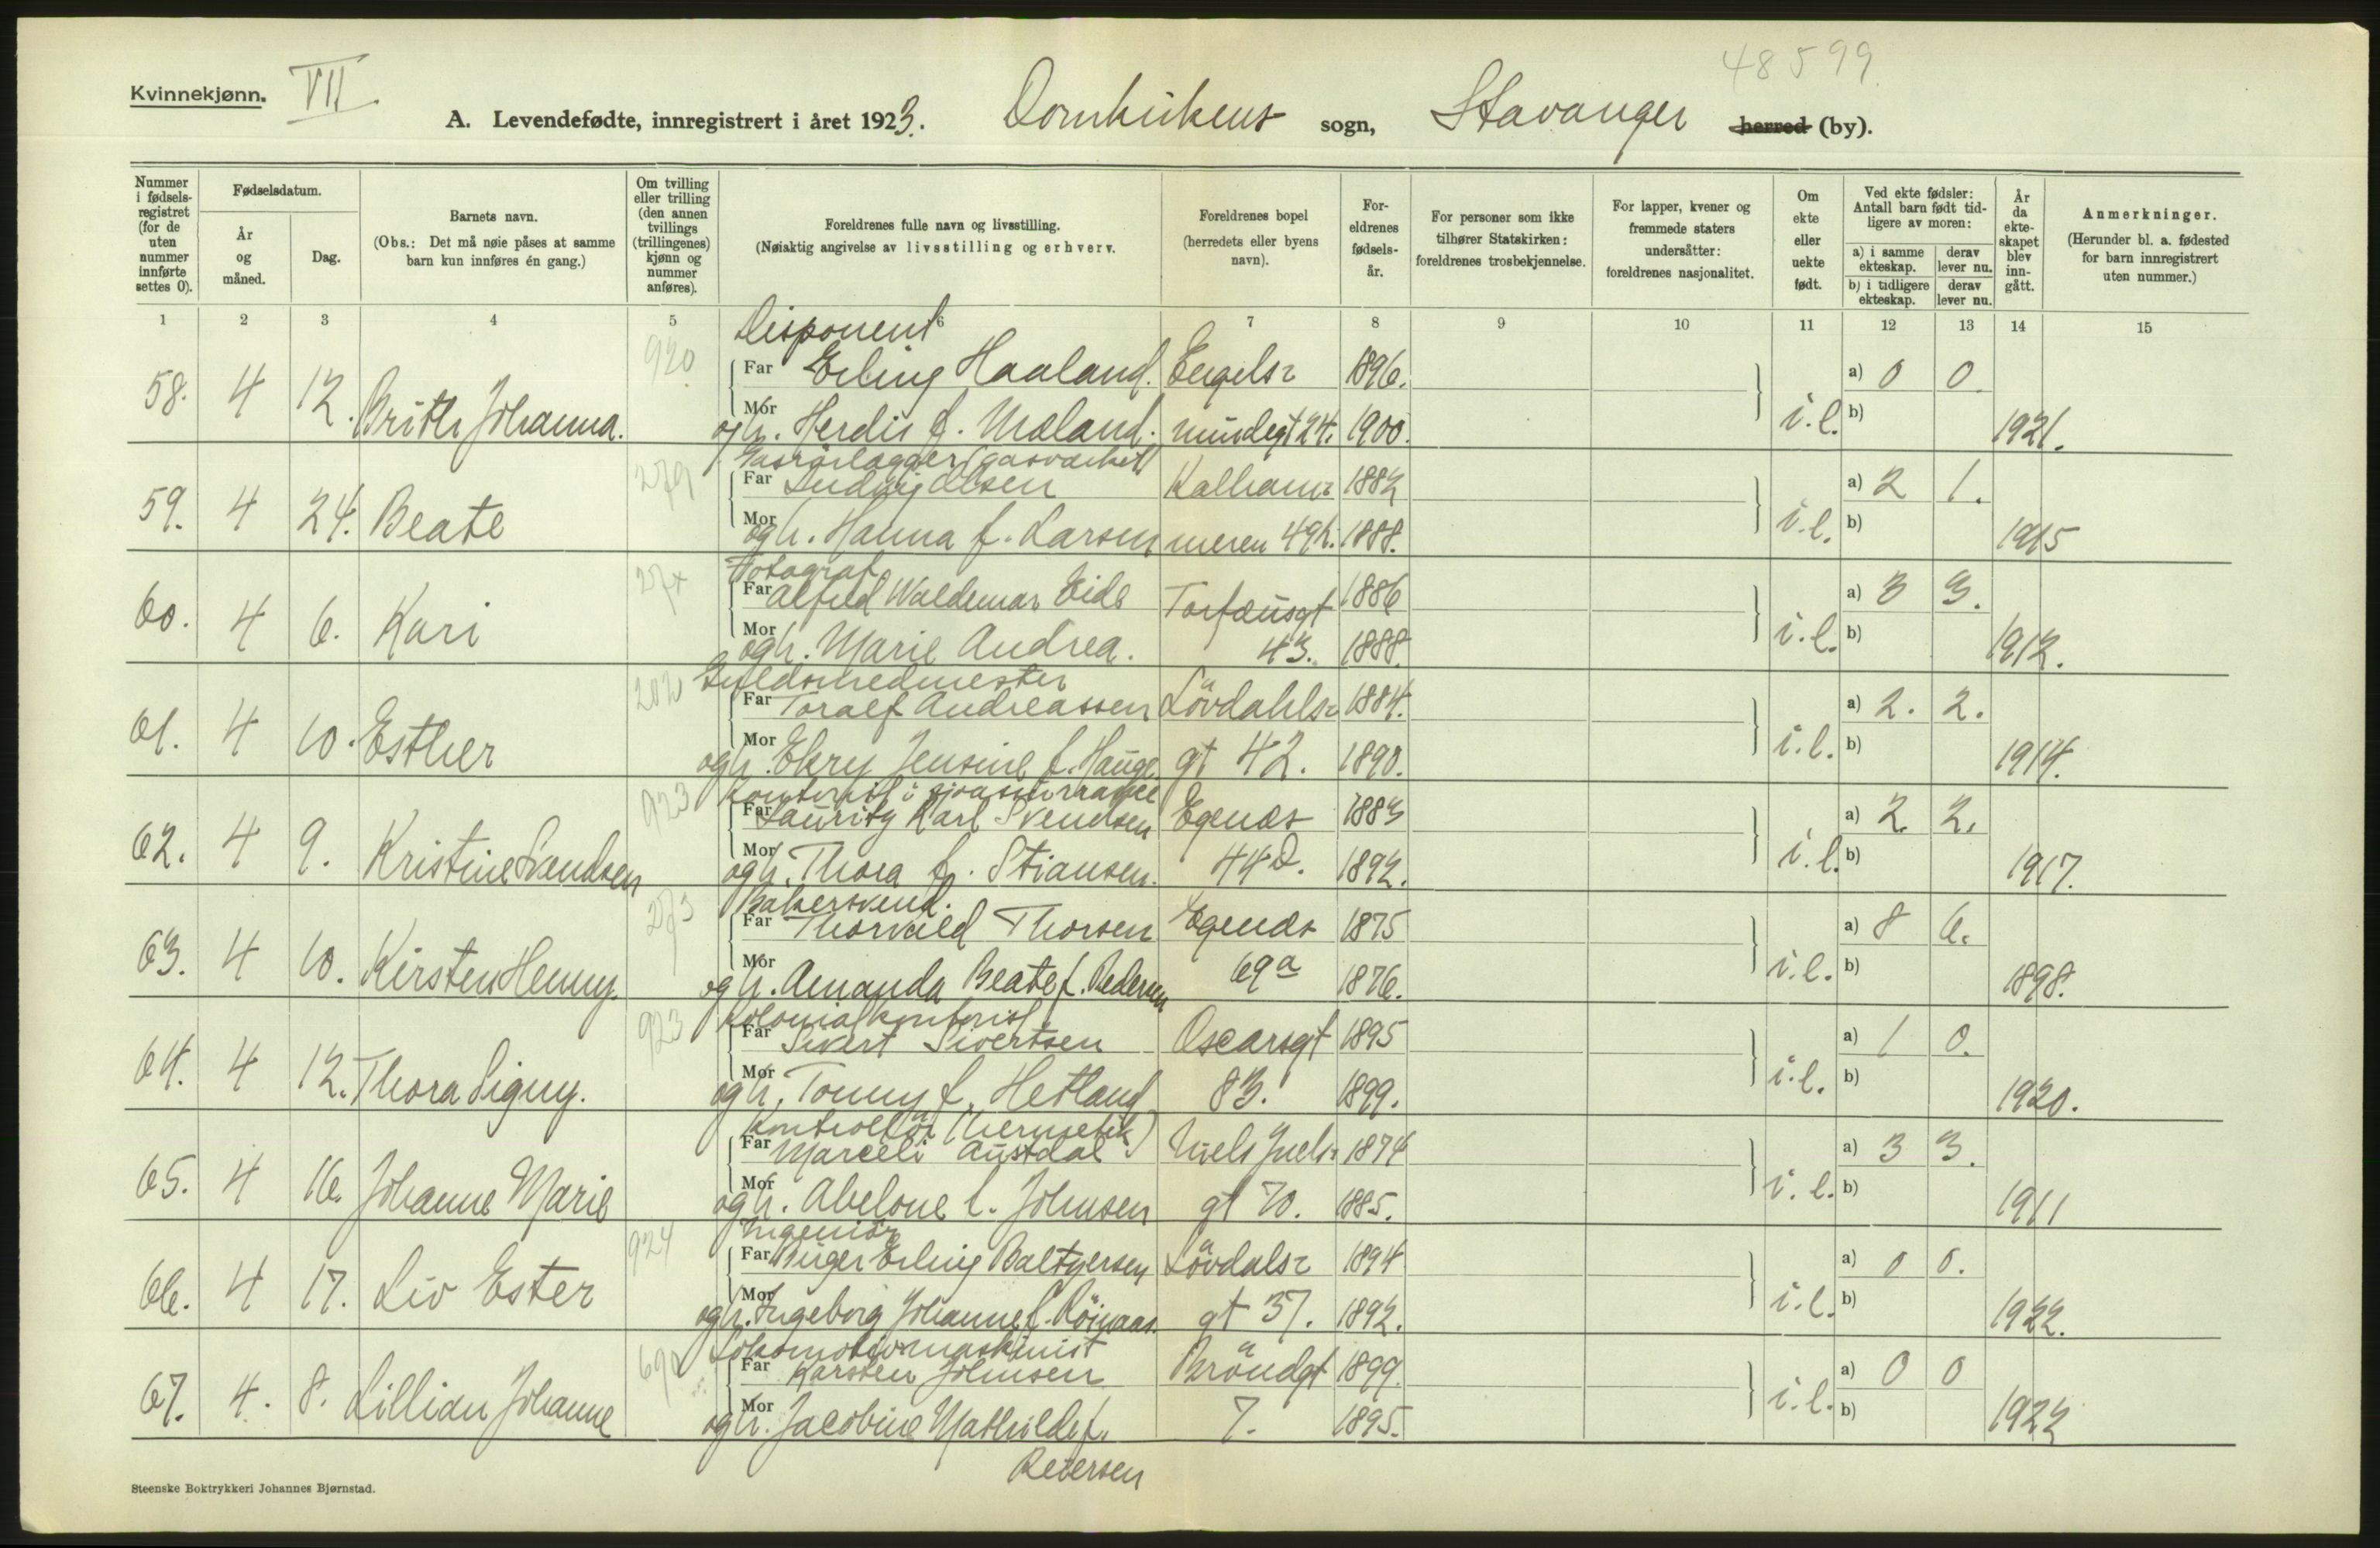 48599
Kvinnekjønn. VII
A. Levendefødte, innregistrert i året 1923. Domkirkens sogn, Stavanger herred (by).
Nummer i fødsels-registret (for de uten nummer innførte settes 0).
Fødselsdatum.
År og måned.
Dag.
Barnets navn.
(Obs.: Det må nøie påses at samme barn kun innføres én gang.)
Om tvilling eller trilling (den annen tvillings (trillingenes) kjønn og nummer anføres).
Foreldrenes fulle navn og livsstilling.
(Nøiaktig angivelse av livsstilling og erhverv.
Foreldrenes bopel (herredets eller byens navn).
For-eldrenes fødsels-år.
For personer som ikke tilhører Statskirken: foreldrenes trosbekjennelse.
For lapper, kvener og fremmede staters undersåtter: foreldrenes nasjonalitet.
Om ekte eller uekte født.
Ved ekte fødsler: Antall barn født tid-ligere av moren:
a) i samme ekteskap.
derav lever nu.
b) i tidligere ekteskap.
derav lever nu.
År da ekte-skapet blev inn-gått.
Anmerkninger.
(Herunder bl. a. fødested for barn innregistrert uten nummer.)
1 2 3 4 5 6 7 8 9 10 11 12 13 14 15
920 Disponent
Far Erling Haaland. Engels- 1896. a) 0 0
58. 4 12. Brith Johanna. Mor og h. Herdis f. Mæland. mindegt 24. 1900. i.l. b) 1921.
279 Gasrörlægger (gasværket)
Far Ludvig Olsen Kalham- 1882 a) 2 1.
59. 4 24. Beate Mor og h. Hanna f. Larsen meren 49h. 1888. i.l. b) 1915
Fotograf
Far Alfred Waldemar Eide Torfæusgt 1886 a) 3 3.
60. 4 6. Kari Mor og h. Marie Andrea. 43. 1888. i.l. b) 1912.
202 Guldsmedmester
Far Toralf Andreassen Lövdahls- 1884. a) 2. 2.
61. 4 10. Esther Mor og h. Elery Jensine f. Hauge gt 42. 1890. i.l. b) 1914.
923 Kontorist i
Far Lauritz Karl Svendsen Egenes 1883 a) 2. 2.
62. 4 9. Kristine Svendsen Mor og h. Thora f. Stiansen. 44D. 1892. i.l. b) 1917.
273 Bakersvend.
Far Thorvald Thorsen Egenæs 1875 a) 8 6.
63. 4 10. Kirsten Henny. Mor og h. Amanda Beate f. Pedersen 69a 1876. i.l. b) 1898.
923 Kolonialkontorist
Far Sivert Sivertsen Oscarsgt 1895 a) 1 0.
64. 4 12. Thora Signy. Mor og h. Tonny f. Hetland 83. 1899. i.l. b) 1920.
Kontrollör (hermetik)
Far Marceli Austdal Niels Juels- 1874 a) 3 3.
65. 4 16. Johanne Marie Mor og h. Abelone f. Johnsen gt 70. 1885. i.l. b) 1911
924 Ingeniör
Far Birger Erling Baltzersen Lövdals- 1894 a) 0 0.
66. 4 17. Liv Ester Mor og h. Ingeborg Johanne f. Röinaas. gt 37. 1892. i.l. b) 1922.
690 Lokomotivmaskinist
Far Karsten Johnsen Bröndgt 1899. a) 0 0
67. 4. 8. Lillian Johanne Mor og h. Jacobine Mathilde f. 7. 1895. i.l. b) 1922
Petersen
Steenske Boktrykkeri Johannes Bjørnstad.